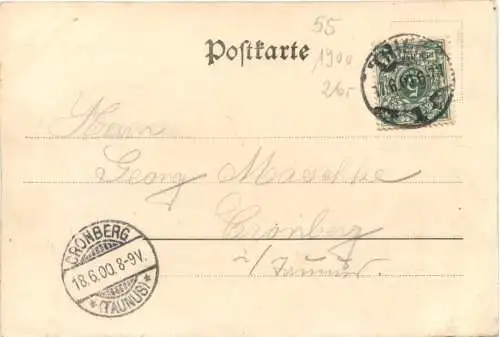 55
Postkarte
1900
26.-
Herrn
Georg Maschke
Cronberg
i/Taunus
CRONBERG
18.6.00.8-9V.
*(TAUNUS)*